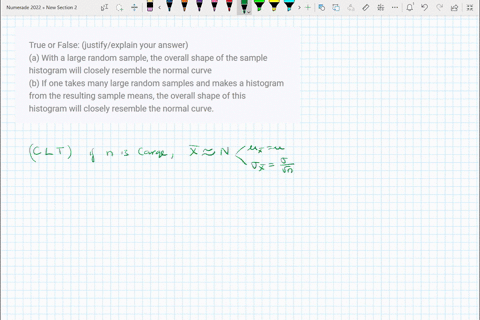 Numerade 2022 » New Section 2
True or False: (justify/explain your answer)
(a) With a large random sample, the overall shape of the sample
histogram will closely resemble the normal curve
(b) If one takes many large random samples and makes a histogram
from the resulting sample means, the overall shape of this
histogram will closely resemble the normal curve.
(CLT) if n is large, x̄ ≈ N < μx̄ = μ
σx̄ = σ/√n